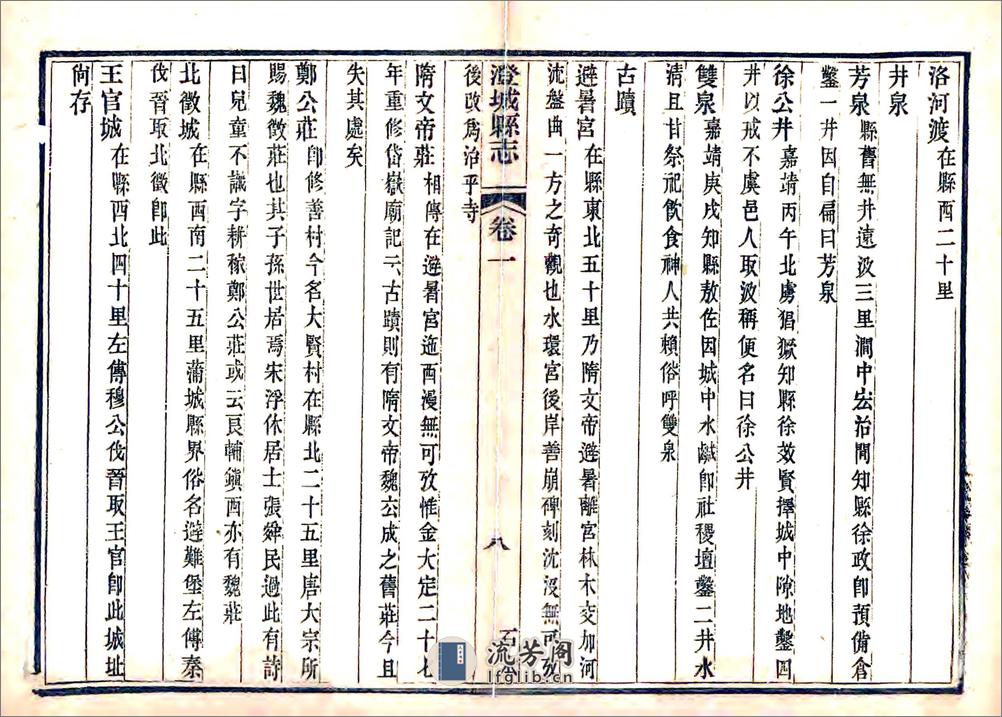 洛河渡在縣西二十里
井泉
芳泉縣舊無井遠汲三里澗中宏治間知縣徐政卽預備倉
鑿一井因自扁曰芳泉
徐公井嘉靖丙午北虜猖獗知縣徐效賢擇城中隙地鑿四
井以戒不虞邑人取汲稱便名曰徐公井
雙泉嘉靖庚戌知縣敖佐因城中水鹹卽社稷壇鑿二井水
淸且甘祭祀飮食神人共賴俗呼雙泉
古蹟
避暑宮在縣東北五十里乃隋文帝避暑離宮林木交加河
流盤曲一方之奇觀也水環宮後岸善崩碑刻沈沒無可攷
澄城縣志 卷一 八
後改爲治平寺
隋文帝莊相傳在避暑宮迤西漫無可攷惟金大定二十七
年重修岱嶽廟記云古蹟則有隋文帝魏公成之舊莊今且
失其處矣
鄭公莊卽修善村今名大賢村在縣北二十五里唐太宗所
賜魏徵莊也其子孫世居焉宋浮休居士張舜民過此有詩
曰兒童不識字耕稼鄭公莊或云艮輔鎭西亦有魏莊
北徵城在縣西南二十五里蒲城縣界俗名避難堡左傳秦
伐晉取北徵卽此
王官城在縣西北四十里左傳穆公伐晉取王官卽此城址
尙存
流芳阁
lfglib.cn